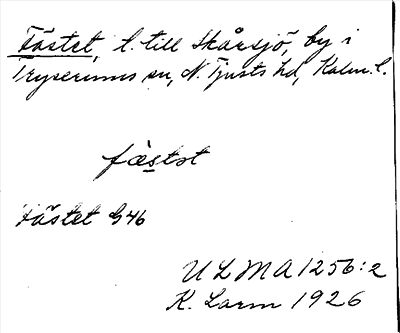 Fästet, l. till Skårsjö, by i
Tryserums sn, N. Tjusts hd, Kalm. l.
fæ̀stət
Fästet G46
ULMA 1256:2
K. Larm 1926